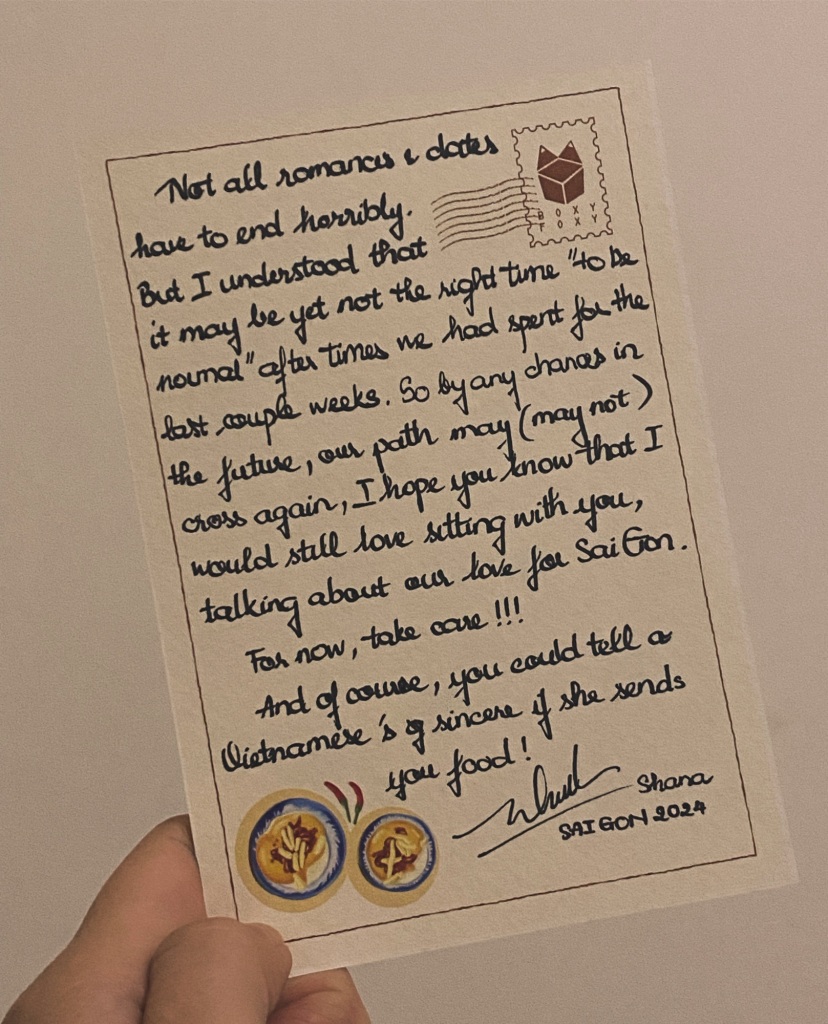 Not all romances & dates
BOXY
FOXY
have to end horribly.
But I understood that
it may be yet not the right time "to be
normal" after times we had spent for the
last couple weeks. So by any chances in
the future, our path may (may not)
cross again, I hope you know that I
would still love sitting with you,
talking about our love for SaiGon.
For now, take care !!!
And of course, you could tell a
Vietnamese's sincere if she sends
you food!
Shana
SAIGON 2024